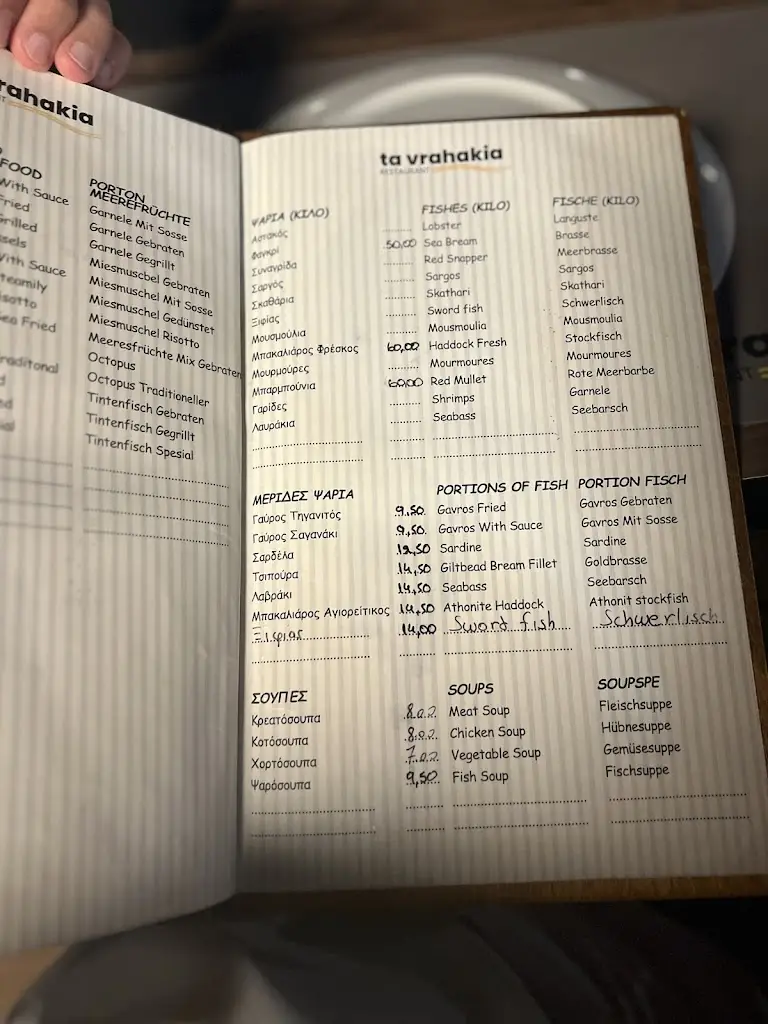 rahakia
FOOD
With Sauce
Fried
Grilled
ssels
With Sauce
teamily
isotto
Sea Fried
raditonal
PORTON
MEEREFRÜCHTE
Garnele Mit Sosse
Garnele Gebraten
Garnele Gegrillt
Miesmuscbel Gebraten
Miesmuschel Mit Sosse
Miesmuschel Gedünstet
Miesmuschel Risotto
Meeresfrüchte Mix Gebraten
Octopus
Octopus Traditioneller
Tintenfisch Gebraten
Tintenfisch Gegrillt
Tintenfisch Spesial
ta vrahakia
RESTAURANT
ΨΑΡΙΑ (ΚΙΛΟ) FISHES (KILO) FISCHE (KILO)
Αστακός Lobster Languste
Φαγκρί 50,00 Sea Bream Brasse
Συναγρίδα Red Snapper Meerbrasse
Σαργός Sargos Sargos
Σκαθάρια Skathari Skathari
Ξιφίας Sword fish Schwerlisch
Μουσμούλια Mousmoulia Mousmoulia
Μπακαλιάρος Φρέσκος 60,00 Haddock Fresh Stockfisch
Μουρμούρες Mourmoures Mourmoures
Μπαρμπούνια 60,00 Red Mullet Rote Meerbarbe
Γαρίδες Shrimps Garnele
Λαυράκια Seabass Seebarsch
ΜΕΡΙΔΕΣ ΨΑΡΙΑ PORTIONS OF FISH PORTION FISCH
Γαύρος Τηγανιτός 9,50 Gavros Fried Gavros Gebraten
Γαύρος Σαγανάκι 9,50 Gavros With Sauce Gavros Mit Sosse
Σαρδέλα 12,50 Sardine Sardine
Τσιπούρα 14,50 Giltbead Bream Fillet Goldbrasse
Λαβράκι 14,50 Seabass Seebarsch
Μπακαλιάρος Αγιορείτικος 14,50 Athonite Haddock Athonit stockfish
Ξιφιας 14,00 Sword fish Schwerlisch
ΣΟΥΠΕΣ SOUPS SOUPSPE
Κρεατόσουπα Meat Soup Fleischsuppe
Κοτόσουπα Chicken Soup Hübnesuppe
Χορτόσουπα Vegetable Soup Gemüsesuppe
Ψαρόσουπα 9,50 Fish Soup Fischsuppe